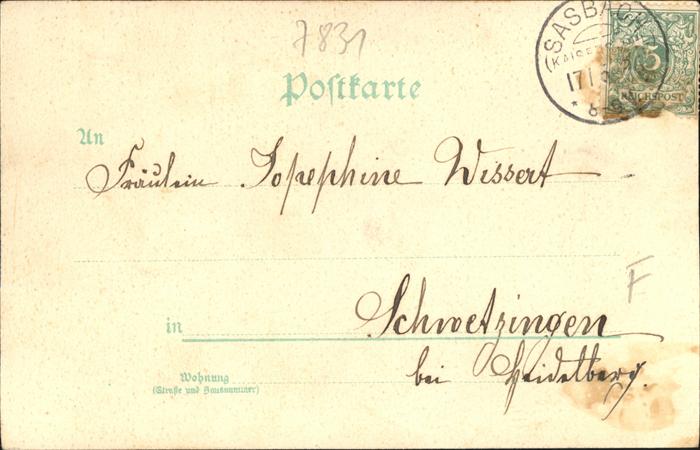 7831
SASBACH
(KAISER
17
8-9
5
REICHSPOST
Postkarte
An
Fräulein Josephine Wissert
F
in Schwetzingen
bei Heidelberg.
Wohnung
(Straße und Hausnummer)